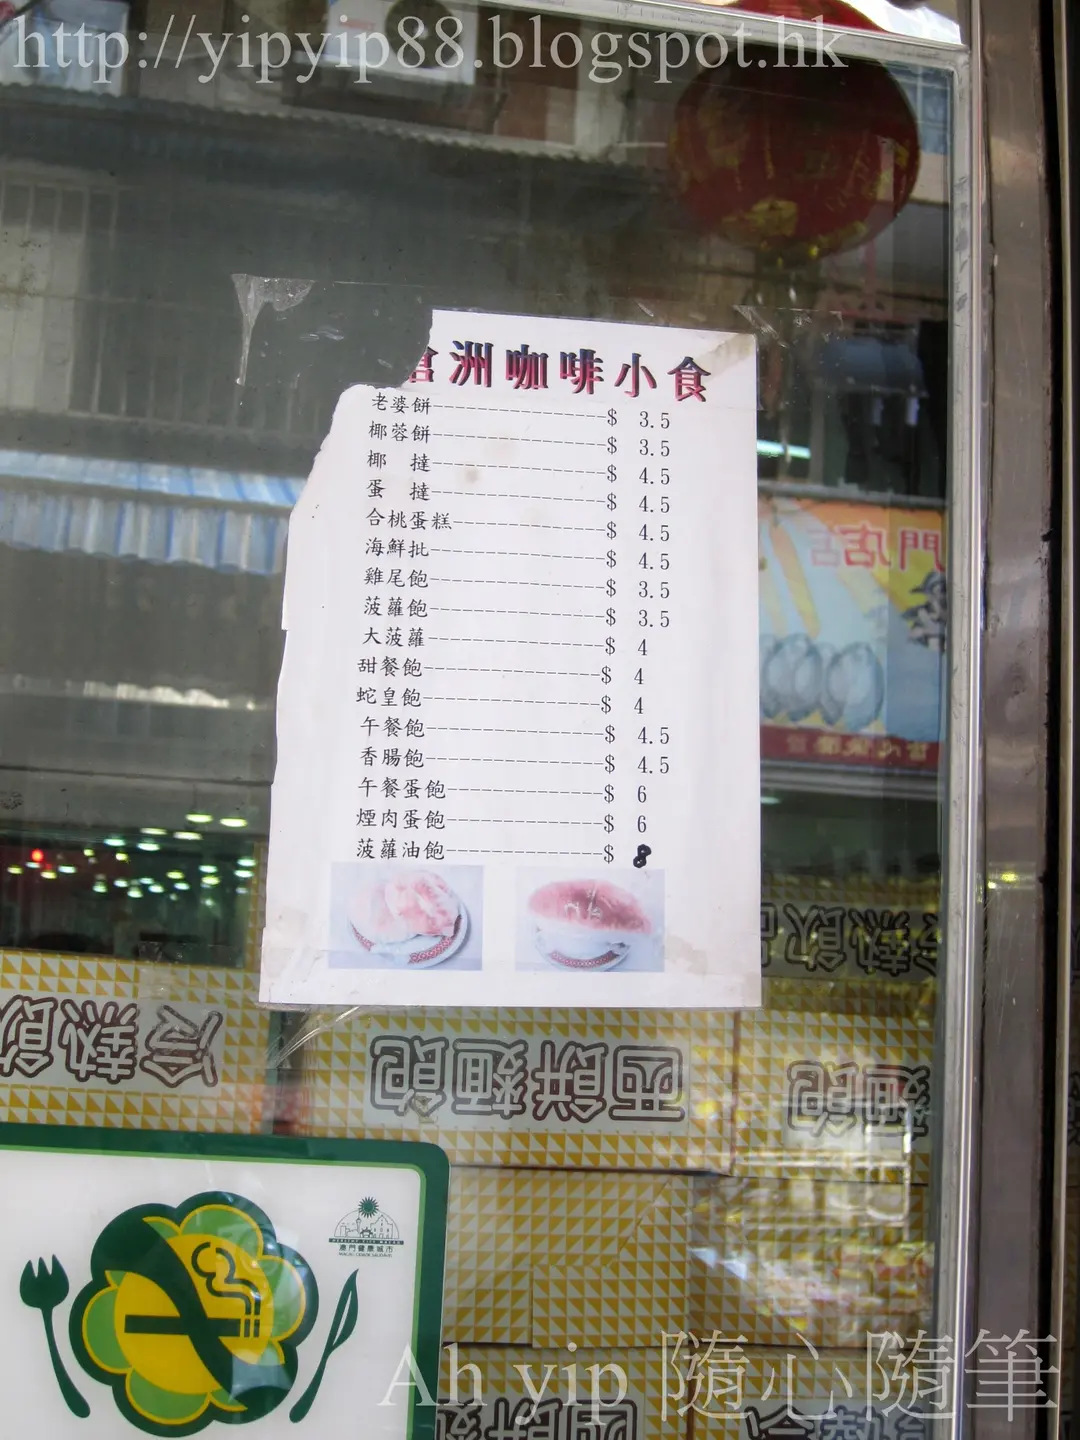 http://yipyip88.blogspot.hk
洲咖啡小食
老婆餅----------------$ 3.5
椰蓉餅----------------$ 3.5
椰 撻----------------$ 4.5
蛋 撻----------------$ 4.5
合桃蛋糕--------------$ 4.5
海鮮批----------------$ 4.5
雞尾飽----------------$ 3.5
菠蘿飽----------------$ 3.5
大菠蘿----------------$ 4
甜餐飽----------------$ 4
蛇皇飽----------------$ 4
午餐飽----------------$ 4.5
香腸飽----------------$ 4.5
午餐蛋飽--------------$ 6
煙肉蛋飽--------------$ 6
菠蘿油飽--------------$ 8
門店
冷熱飲品
冷熱飲
西餅麵飽
麵飽
HEALTHY CITY MACAO
澳門健康城市
MACAU CIDADE SAUDÁVEL
Ah yip 隨心隨筆